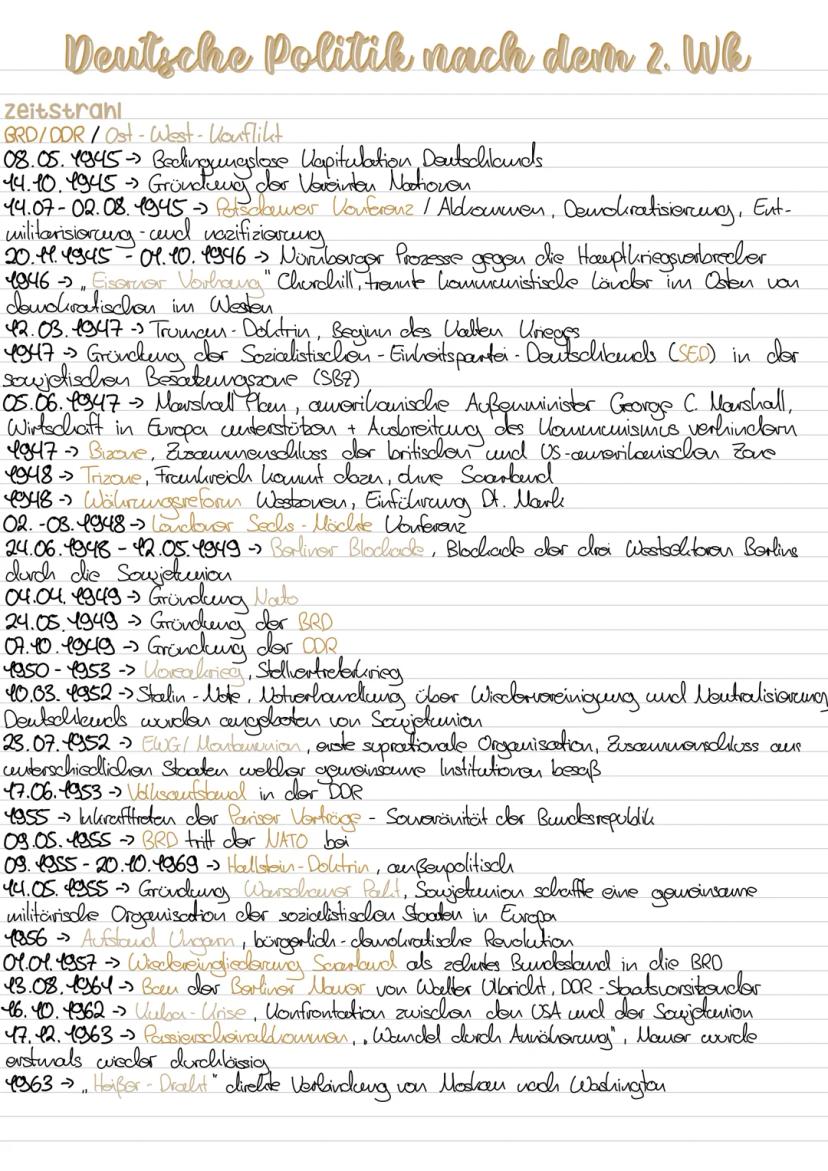 Deutsche Politik nach dem 2. Wk
zeitstrahl
BRD/DDR / Ost-West-Konflikt
08.05.1945 -> Bedingungslose Kapitulation Deutschlands
14.10.1945 -> Gründung der Vereinten Nationen
14.07-02.08.1945 -> Potsdamer Konferenz / Abkommen, Demokratisierung, Ent-
militarisierung-und nazifizierung
20.11.1945 - 01.10.1946 -> Nürnberger Prozesse gegen die Hauptkriegsverbrecher
1946 -> „Eiserner Vorhang" Churchill, trennte kommunistische Länder im Osten von
demokratischen im Westen
12.03.1947 -> Truman-Doktrin, Beginn des Kalten Krieges
1947 -> Gründung der Sozialistischen-Einheitspartei-Deutschlands (SED) in der
sowjetischen Besatzungszone (SBZ)
05.06.1947 -> Marshall Plan, amerikanische Außenminister George C. Marshall,
Wirtschaft in Europa unterstützen + Ausbreitung des Kommunismus verhindern
1947 -> Bizone, Zusammenschluss der britischen und US-amerikanischen Zone
1948 -> Trizone, Frankreich kommt dazu, ohne Saarland
1948 -> Währungsreform Westzonen, Einführung Dt. Mark
02.-03.1948 -> Londoner Sechs-Mächte Konferenz
24.06.1948 - 12.05.1949 -> Berliner Blockade, Blockade der drei Westsektoren Berlins
durch die Sowjetunion
04.04.1949 -> Gründung Nato
24.05.1949 -> Gründung der BRD
07.10.1949 -> Gründung der DDR
1950-1953 -> Koreakrieg, Stellvertreterkrieg
10.03.1952 -> Stalin-Note, Notverhandlung über Wiedervereinigung und Neutralisierung
Deutschlands wurden angeboten von Sowjetunion
23.07.1952 -> EWG/ Montanunion, erste suprationale Organisation, Zusammenschluss aus
unterschiedlichen Staaten welcher gemeinsame Institutionen besaß
17.06.1953 -> Volksaufstand in der DDR
1955 -> Inkrafttreten der Pariser Verträge - Souveränität der Bundesrepublik
09.05.1955 -> BRD tritt der NATO bei
09.1955 - 20.10.1969 -> Hallstein-Doktrin, außenpolitisch
14.05.1955 -> Gründung Warschauer Pakt, Sowjetunion schaffte eine gemeinsame
militärische Organisation der sozialistischen Staaten in Europa
1956 -> Aufstand Ungarn, bürgerlich-demokratische Revolution
01.01.1957 -> Wiedereingliederung Saarland als zehntes Bundesland in die BRD
13.08.1961 -> Bau der Berliner Mauer von Walter Ulbricht, DDR-Staatsvorsitzender
16.10.1962 -> Kuba-Krise, Konfrontation zwischen den USA und der Sowjetunion
17.12.1963 -> Passierscheinabkommen, „Wandel durch Annäherung", Mauer wurde
erstmals wieder durchlässig
1963 -> „Heißer-Draht" direkte Verbindung von Moskau nach Washington